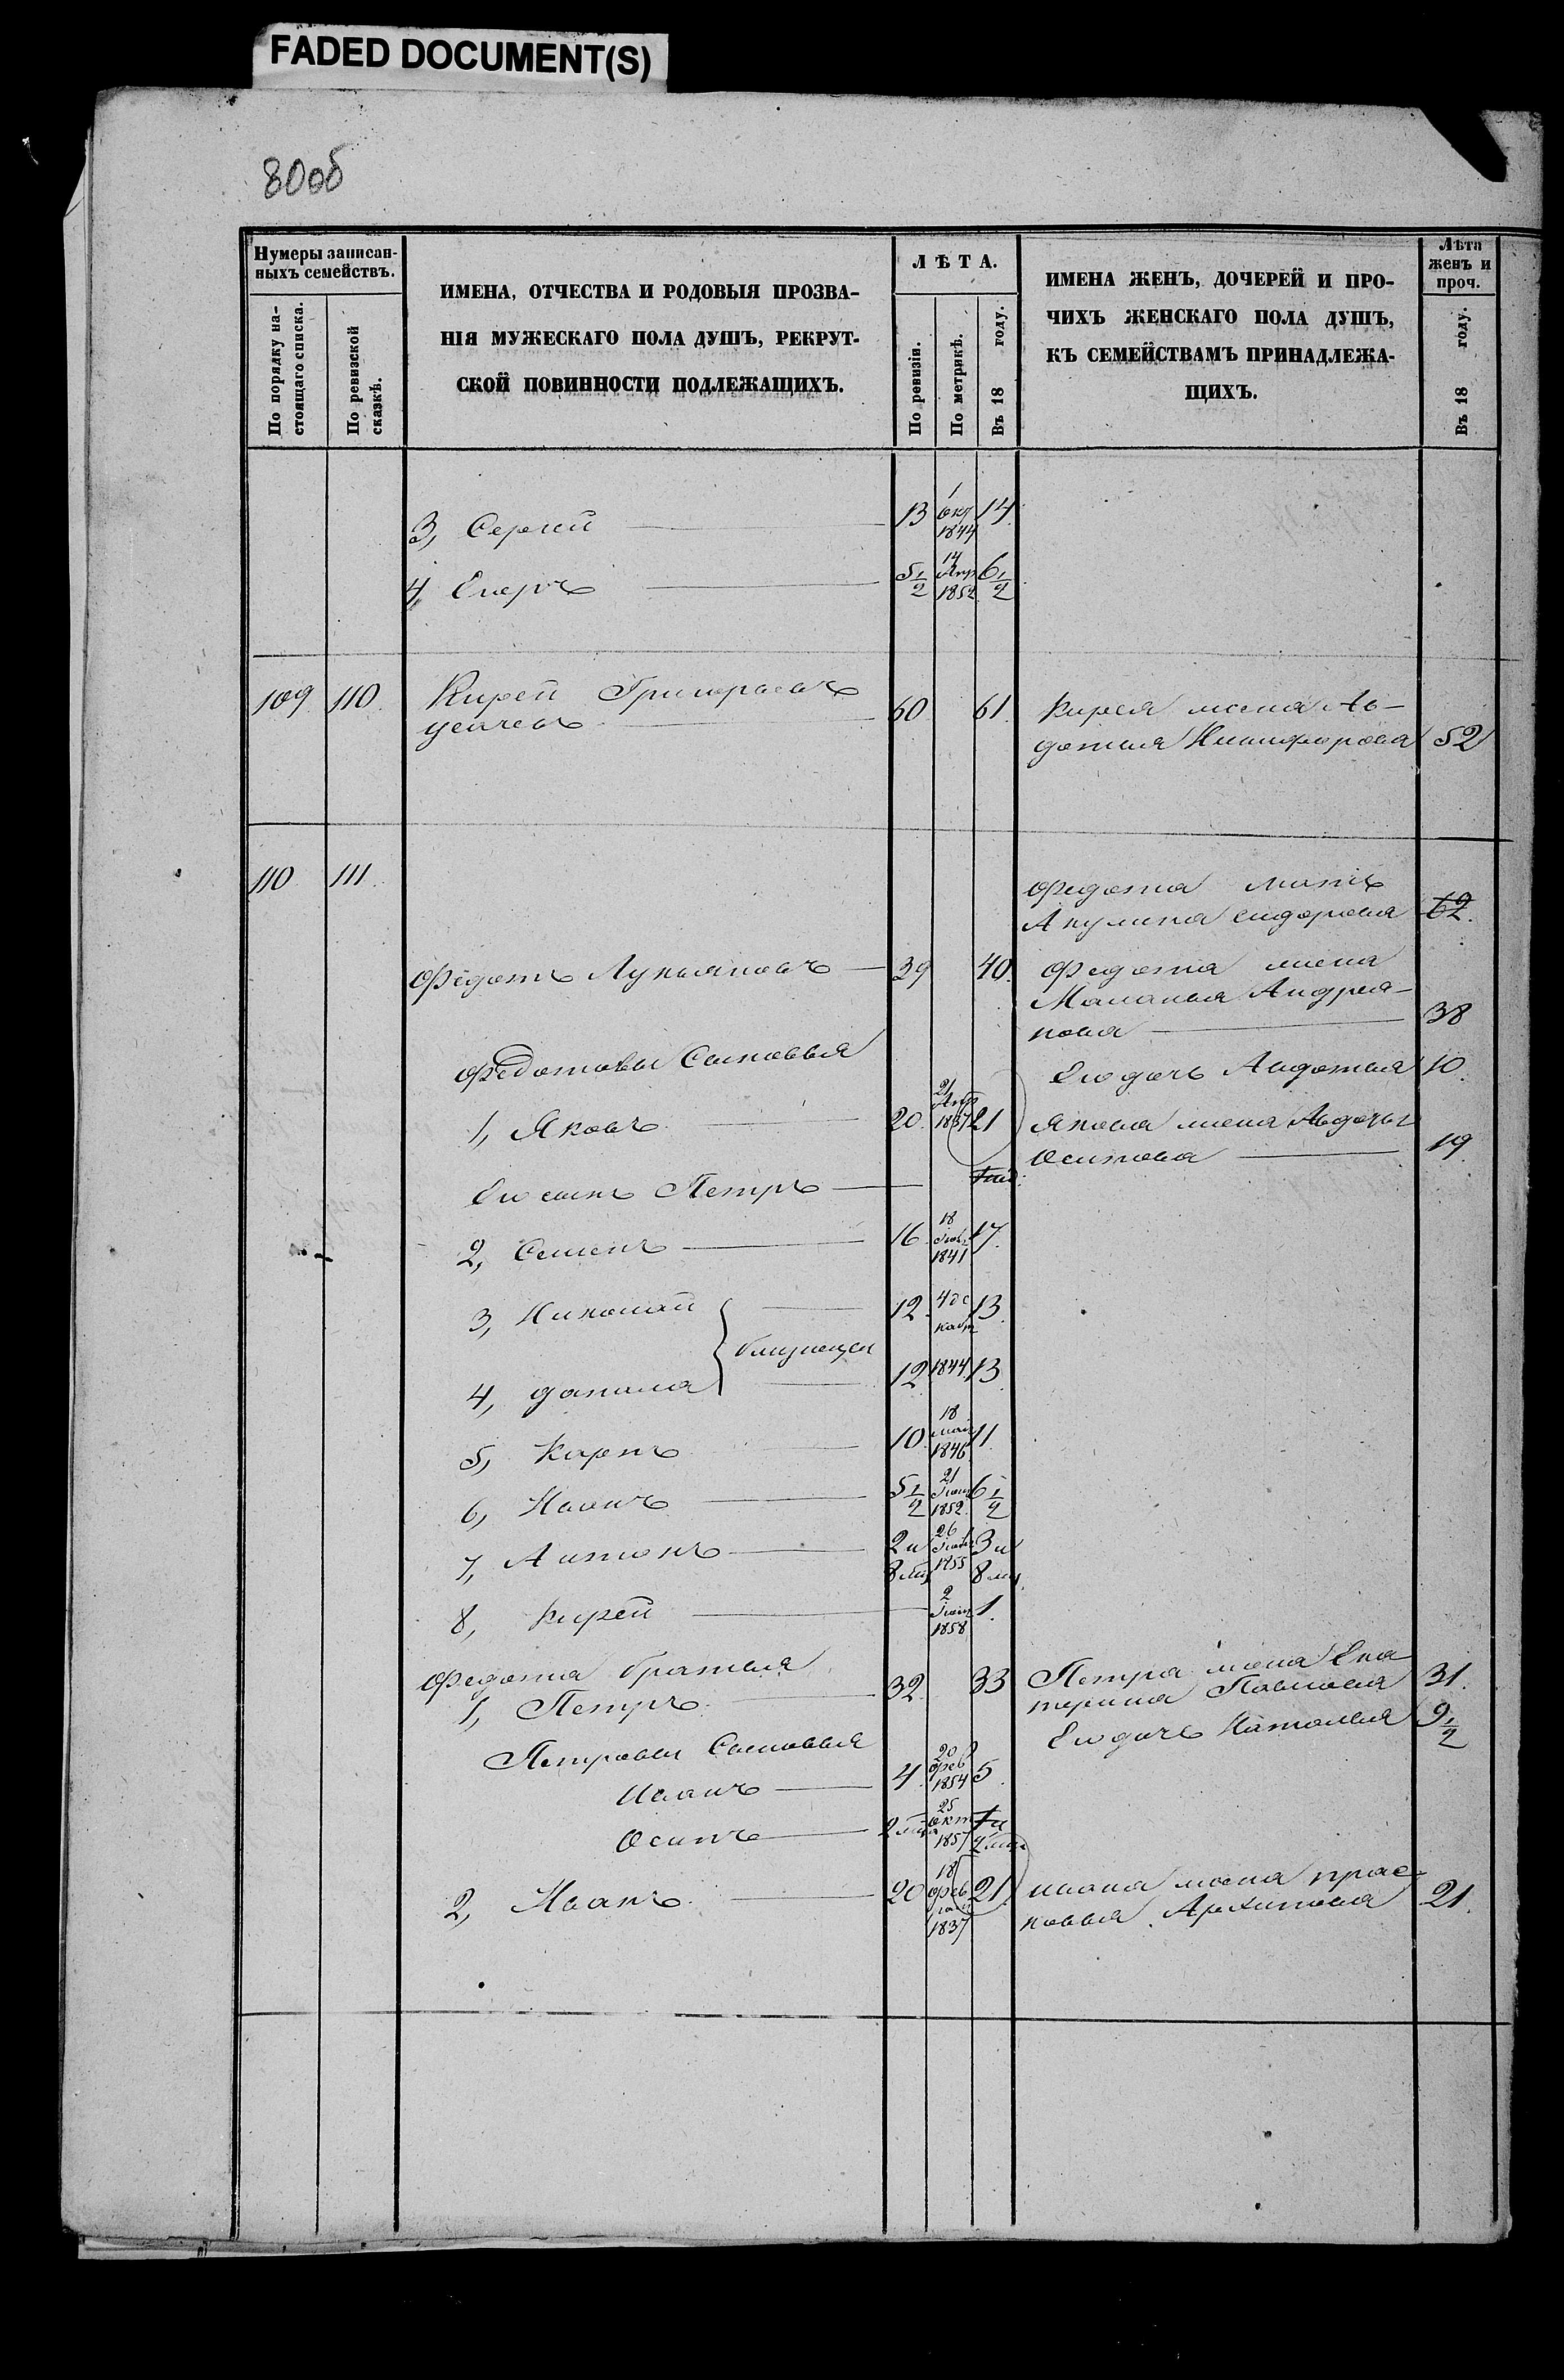 FADED DOCUMENT(S)
80об
Нумеры записан-
ныхъ семействъ.
По порядку на-
стоящаго списка.
По ревизской
сказкѣ.
ИМЕНА, ОТЧЕСТВА И РОДОВЫЯ ПРОЗВА-
НІЯ МУЖЕСКАГО ПОЛА ДУШЪ, РЕКРУТ-
СКОЙ ПОВИННОСТИ ПОДЛЕЖАЩИХЪ.
ЛѢТА.
По ревизіи.
По метрикѣ.
Въ 18 году.
ИМЕНА ЖЕНЪ, ДОЧЕРЕЙ И ПРО-
ЧИХЪ ЖЕНСКАГО ПОЛА ДУШЪ,
КЪ СЕМЕЙСТВАМЪ ПРИНАДЛЕЖА-
ЩИХЪ.
Лѣта
женъ и
проч.
Въ 18 году.
3, Сергѣй 13 1 окт 1844 14.
4, Егоръ 5 1/2 14 Апр 1852 6 1/2
109 110 Кирей Григорьевъ
60 61. Кирея жена Ав-
дотья Никифорова 52
110 111. Федота мать
Акулина Сидорова 62.
Федотъ Лукьяновъ 39 40. Федота жена
Маланья Андрея-
нова 38
Федотовы Сыновья
Его дочь Авдотья 10.
1, Яковъ 20. 21 Апр 1837 21 Якова жена Авдотья
Осипова 19
Его сынъ Петръ
2, Семенъ 16. 18 1841 17.
3, Николай 12. 4 де 13.
близнецы
4, Данила 12 1844 13.
5, Карпъ 10. 18 мая 1846 11.
6, Иванъ 5 1/2 21 1852. 6 1/2
7, Антонъ 2 и 8 мц 26 1855 3 и 8 мц.
8, Кирей 2 1858 1.
Федота братья
1, Петръ. 32. 33 Петра жена Ека
терина Павлова 31.
Его дочь Наталья 9 1/2
Петровы Сыновья
Иванъ 4. 20 фев 1854 5.
Осипъ 2 мца 25 окт 1857
2, Иванъ. 20 18 фев 1837 21. Ивана жена прас-
ковья Архипова 21.